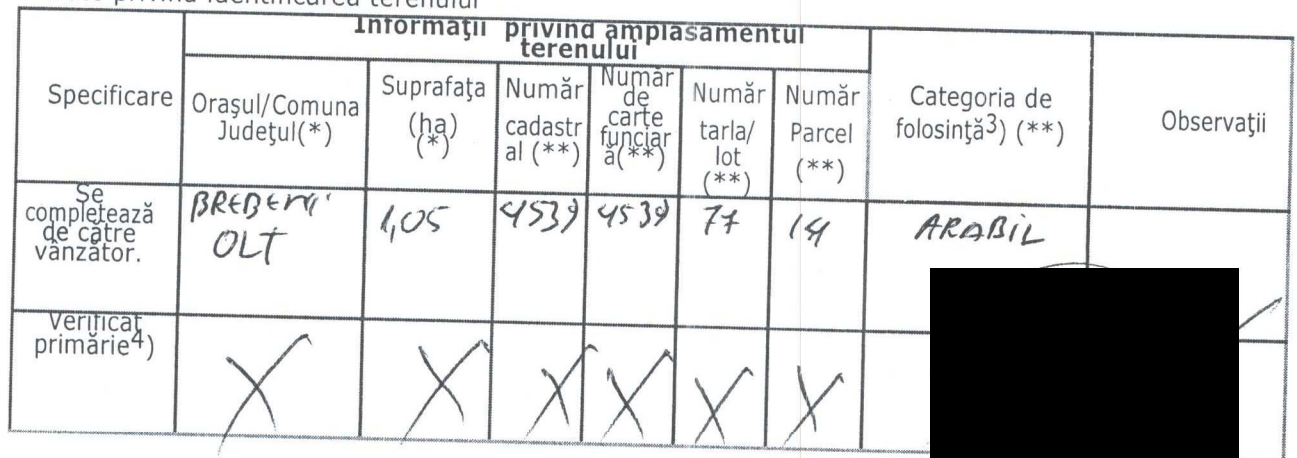 privind identificarea terenului
Informaţii privind amplasamentul
terenului
Specificare
Oraşul/Comuna
Judeţul(*)
Suprafaţa
(ha)
(*)
Număr
cadastr
al (**)
Număr
de
carte
funciar
ă(**)
Număr
tarla/
lot
(**)
Număr
Parcel
(**)
Categoria de
folosinţă3) (**)
Observaţii
Se
completează
de către
vânzător.
BREBENI
OLT
1,05
4539
4539
77
14
ARABIL
Verificat
primărie4)
X
X
X
X
X
X